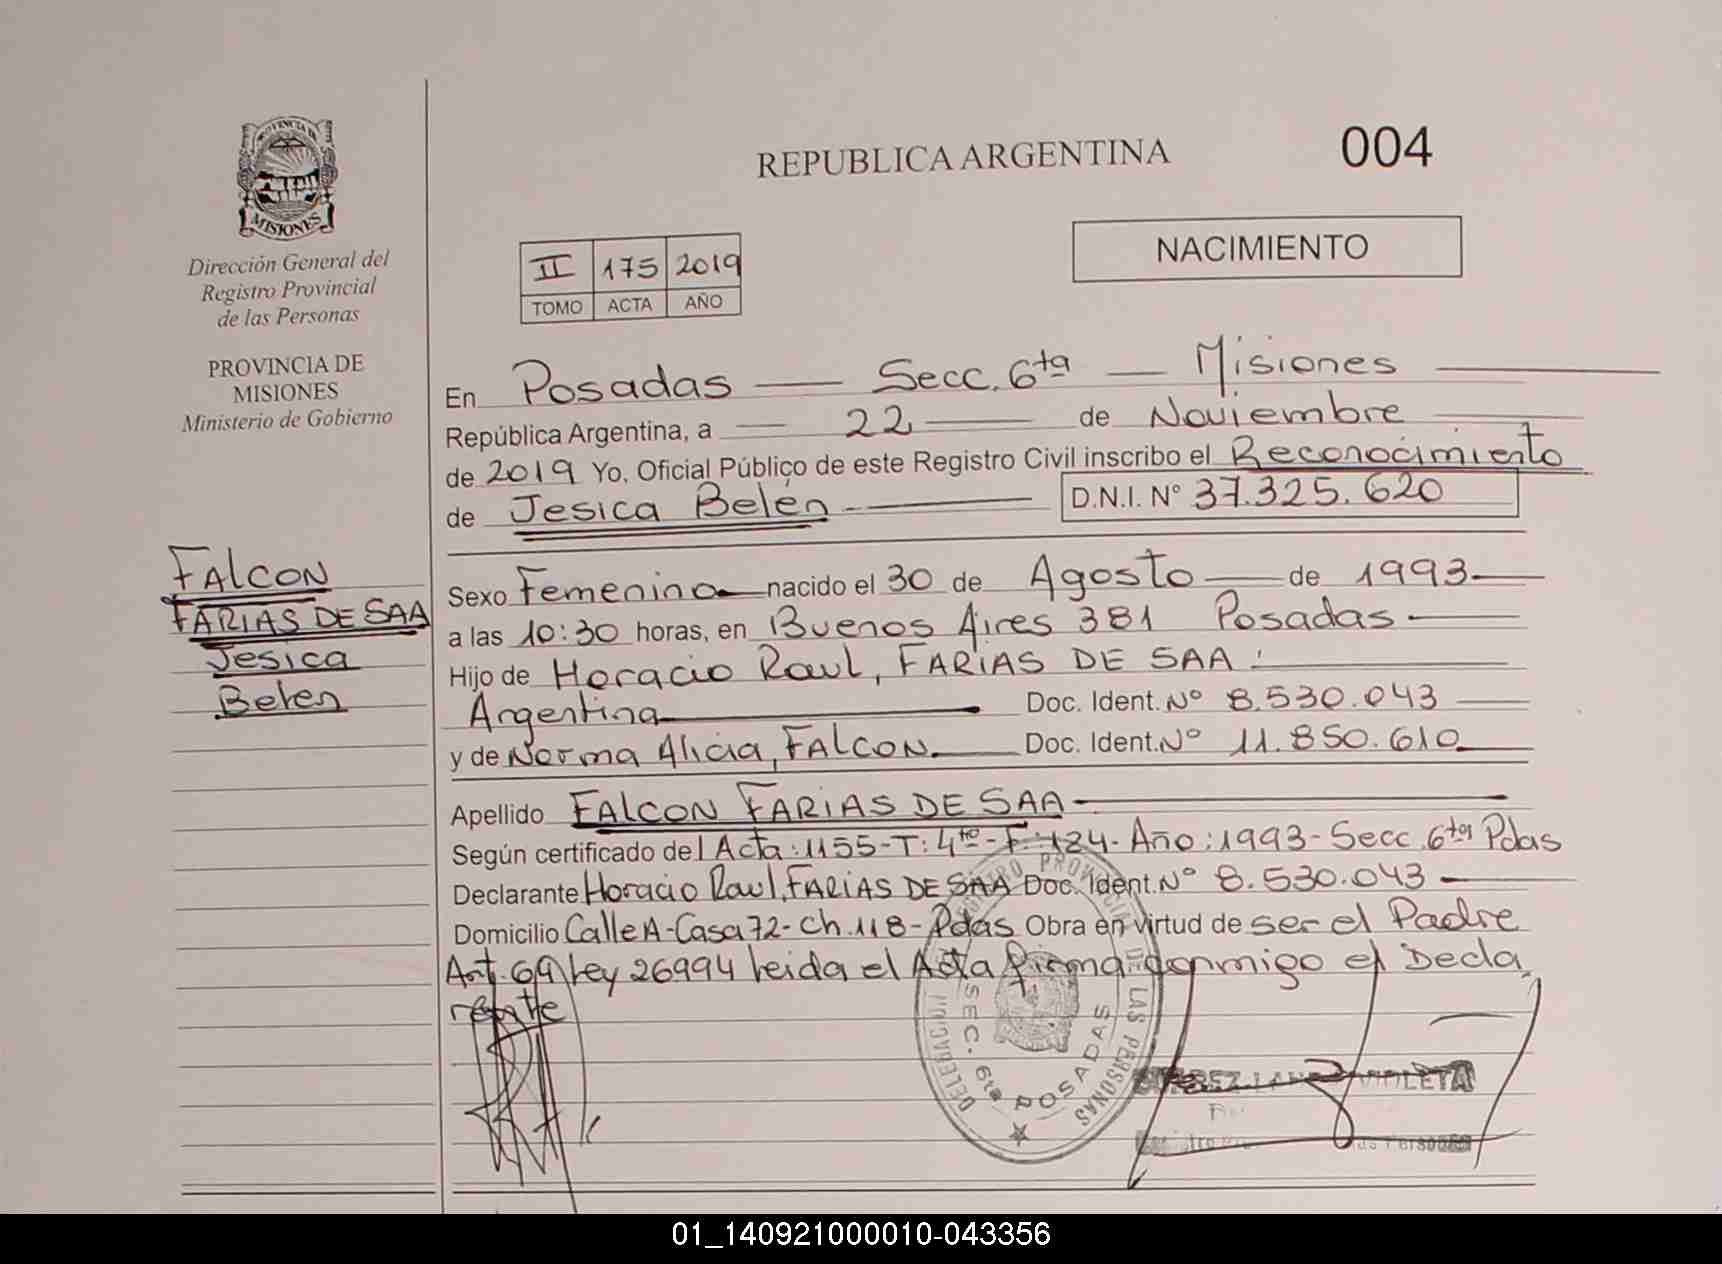 004
REPUBLICA ARGENTINA
NACIMIENTO
PROVINCIA DE
MISIONES
Dirección General del
Registro Provincial
de las Personas
PROVINCIA DE
MISIONES
Ministerio de Gobierno
II 175 2019
TOMO ACTA AÑO
FALCON
FARIAS DE SAA
Jesica
Belen
En Posadas — Secc. 6ta — Misiones
República Argentina, a — 22 — de Noviembre
de 2019 Yo, Oficial Público de este Registro Civil inscribo el Reconocimiento
de Jesica Belén D.N.I. N° 37.325.620
Sexo Femenino nacido el 30 de Agosto de 1993
a las 10:30 horas, en Buenos Aires 381 Posadas
Hijo de Horacio Raul, FARIAS DE SAA
Argentina Doc. Ident. Nº 8.530.043
y de Norma Alicia, FALCON. Doc. Ident. Nº 11.850.610
Apellido FALCON FARIAS DE SAA
Según certificado del Acta: 1155-T: 4to-F: 124- Año: 1993- Secc. 6ta Pdas
Declarante Horacio Raul, FARIAS DE SAA Doc. Ident. Nº 8.530.043
Domicilio Calle A-Casa 72- Ch. 118- Pdas Obra en virtud de ser el Padre
Art. 69 Ley 26994 leida el Acta firma conmigo el Decla
rante
DELEGACION REGISTRO PROVINCIAL DE LAS PERSONAS
SEC. 6ta POSADAS
VIOLETA
01_140921000010-043356